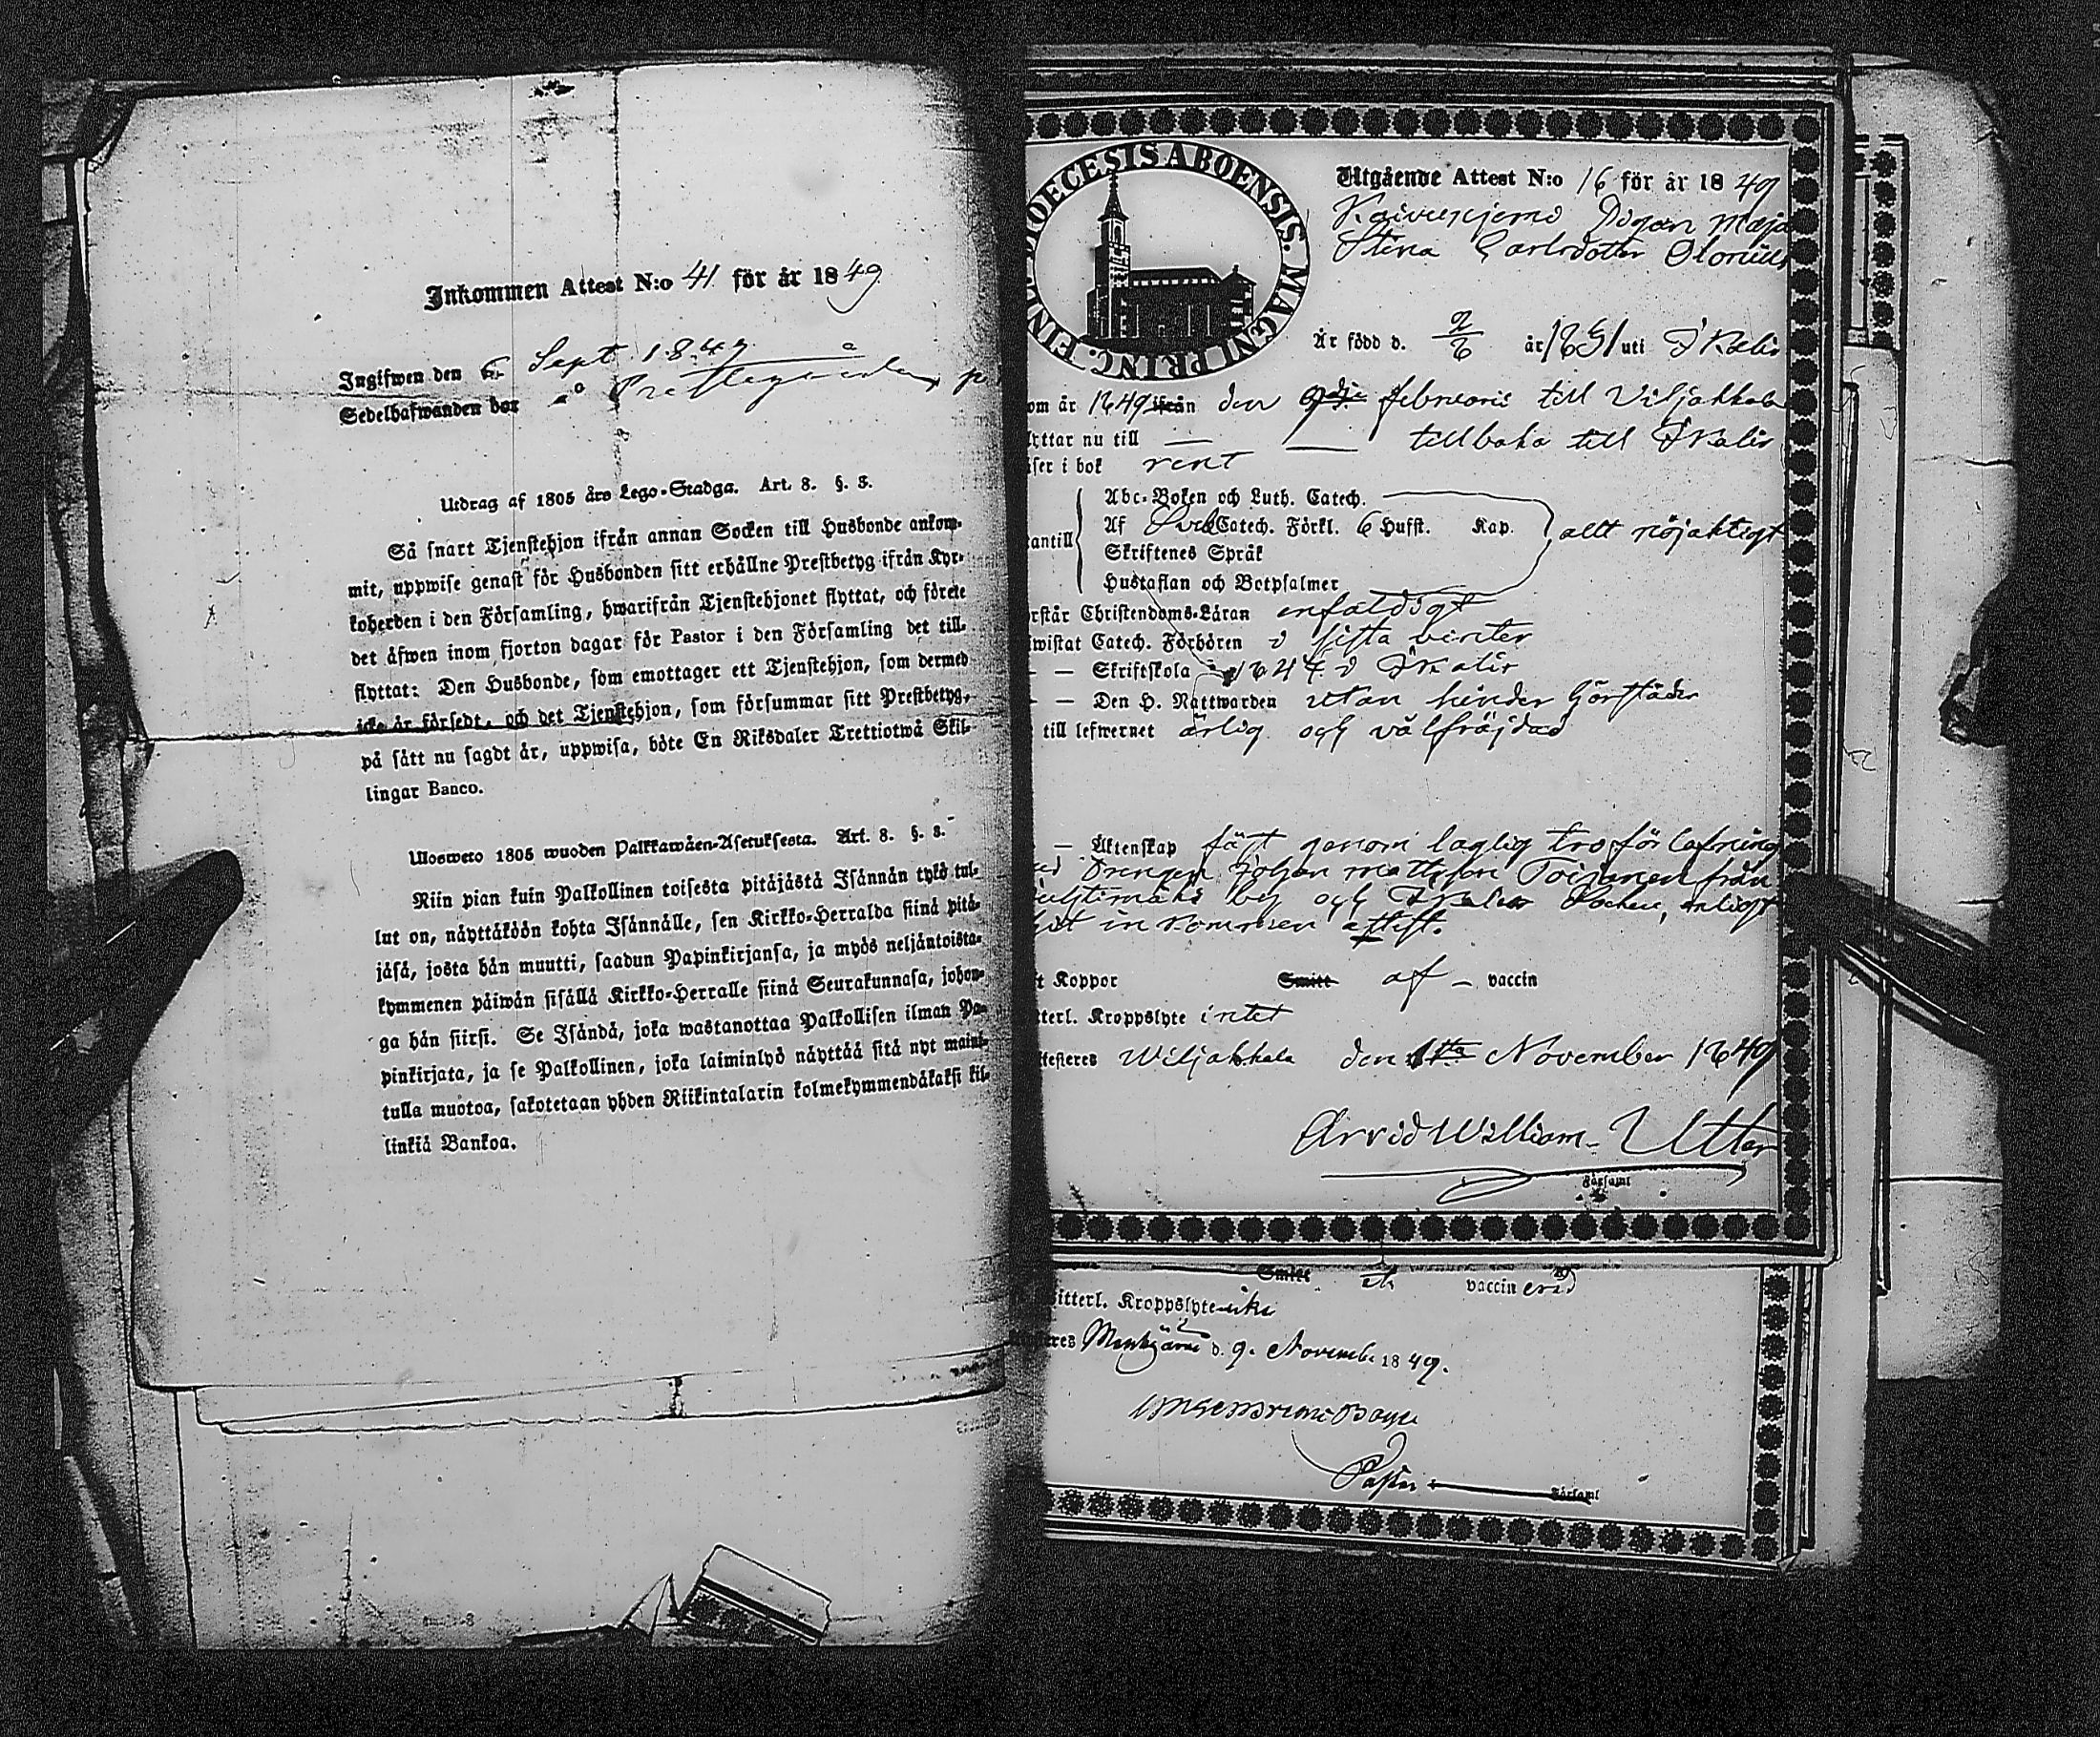 Inkommen Attest N:o 41 för år 1849.
Ingifwen den 6 Sept. 1849.
Sedelhafwanden bor
Utdrag af 1805 års Lego-Stadga. Art. 8. §. 3.
Så snart Tjenstehjon ifrån annan Socken till Husbonde ankom-
mit, uppwise genast för Husbonden sitt erhållne Prestbetyg ifrån Kyr-
koherden i den Församling, hwarifrån Tjenstehjonet flyttat, och förete
det äfwen inom fjorton dagar för Pastor i den Församling det till-
flyttat: Den Husbonde, som emottager ett Tjenstehjon, som dermed
icke är försedt, och det Tjenstehjon, som försummar sitt Prestbetyg,
på sätt nu sagdt är, uppwisa, böte En Riksdaler Trettiotwå Skil-
lingar Banco.
Ulosweto 1805 wuoden Palkkawäen-Asetuksesta. Art. 8. §. 3.
Niin pian kuin Palkollinen toisesta pitäjästä Isännän tykö tul-
lut on, näyttäköön kohta Isännälle, sen Kirkko-Herralda siinä pitä-
jäsä, josta hän muutti, saadun Papinkirjansa, ja myös neljäntoista-
kymmenen päiwän sisällä Kirkko-Herralle siinä Seurakunnasa, johon-
ga hän siirsi. Se Isändä, joka wastanottaa Palkollisen ilman Pa-
pinkirjata, ja se Palkollinen, joka laiminlyö näyttää sitä nyt maini-
tulla muotoa, sakotetaan yhden Riikintalarin kolmekymmendäkaksi kil-
linkiä Bankoa.
DIOECESIS ABOENSIS. MAGNI PRINC. FINL
Utgående Attest N:o 16 för år 1849
Pigan Maja
Stina Carlsdotter
Är född d. 2/6 år 1831 uti Ikalis
om år 1849 ifrån den februarii till Viljakkala
yttar nu till — — tillbaka till Ikalis
äser i bok rent
Abc-Boken och Luth. Catech.
Af Catech. Förkl. 6 Hufst. Kap.
antill allt nöjaktigt
Skriftenes Språk
Hustaflan och Botpsalmer
rstår Christendoms-Läran enfaldigt
iwistat Catech. Förhören i sista vinter
— — Skriftskola 1847 i Ikalis
— — Den H. Nattwarden utan hinder
till lefwernet ärlig och välfräjdad
— Äktenskap fäst genom laglig trolofning
drengen Johan Mattsson Toivonen från
by och Ikalis Socken, enligt
hit inkommen attest.
t Koppor Smitt af — vaccin
tterl. Kroppslyte intet
ttesteres Wiljakkala den November 1849
Arvid William Utter
Församl
Smitt vaccinerad
itterl. Kroppslyte icke
eres d. 9. Novembr 1849.
Pastor Församl